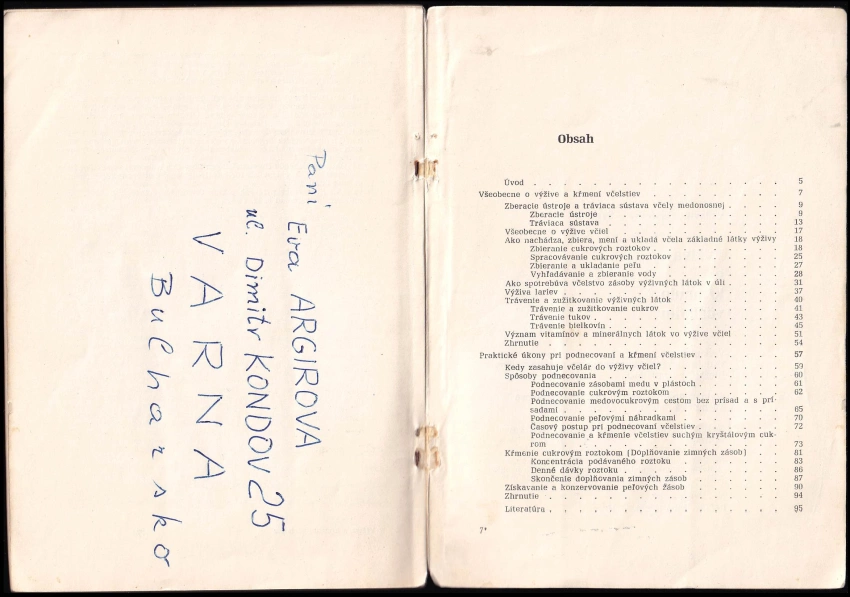 Pani Eva ARGIROVA
ul. Dimitr KONDOV 25
VARNA
Bulharsko
Obsah
Úvod . . . . . . . . . . . . . . . 5
Všeobecne o výžive a kŕmení včelstiev . . . . . . . 7
Zberacie ústroje a tráviaca sústava včely medonosnej . . . 9
Zberacie ústroje . . . . . . . . . . . 9
Tráviaca sústava . . . . . . . . . . . 13
Všeobecne o výžive včiel . . . . . . . . . . 17
Ako nachádza, zbiera, mení a ukladá včela základné látky výživy 18
Zbieranie cukrových roztokov . . . . . . . . 18
Spracovávanie cukrových roztokov . . . . . . 25
Zbieranie a ukladanie peľu . . . . . . . . 27
Vyhľadávanie a zbieranie vody . . . . . . . 28
Ako spotrebúva včelstvo zásoby výživných látok v úli . . . 31
Výživa lariev . . . . . . . . . . . . . 37
Trávenie a zužitkovanie výživných látok . . . . . . 40
Trávenie a zužitkovanie cukrov . . . . . . . 41
Trávenie tukov . . . . . . . . . . . . 43
Trávenie bielkovín . . . . . . . . . . . 45
Význam vitamínov a minerálnych látok vo výžive včiel . . . 51
Zhrnutie . . . . . . . . . . . . . . 54
Praktické úkony pri podnecovaní a kŕmení včelstiev . . . . 57
Kedy zasahuje včelár do výživy včiel? . . . . . . . 59
Spôsoby podnecovania . . . . . . . . . . 60
Podnecovanie zásobami medu v plástoch . . . . . 61
Podnecovanie cukrovým roztokom . . . . . . . 62
Podnecovanie medovocukrovým cestom bez prísad a s prí-
sadami . . . . . . . . . . . . . . 65
Podnecovanie peľovými náhradkami . . . . . . 70
Časový postup pri podnecovaní včelstiev . . . . . 72
Podnecovanie a kŕmenie včelstiev suchým kryštálovým cuk-
rom . . . . . . . . . . . . . . . 73
Kŕmenie cukrovým roztokom (Doplňovanie zimných zásob) . . 81
Koncentrácia podávaného roztoku . . . . . . . 83
Denné dávky roztoku . . . . . . . . . . 86
Skončenie doplňovania zimných zásob . . . . . . 87
Získavanie a konzervovanie peľových zásob . . . . . 90
Zhrnutie . . . . . . . . . . . . . . 94
Literatúra . . . . . . . . . . . . . . 95
7*